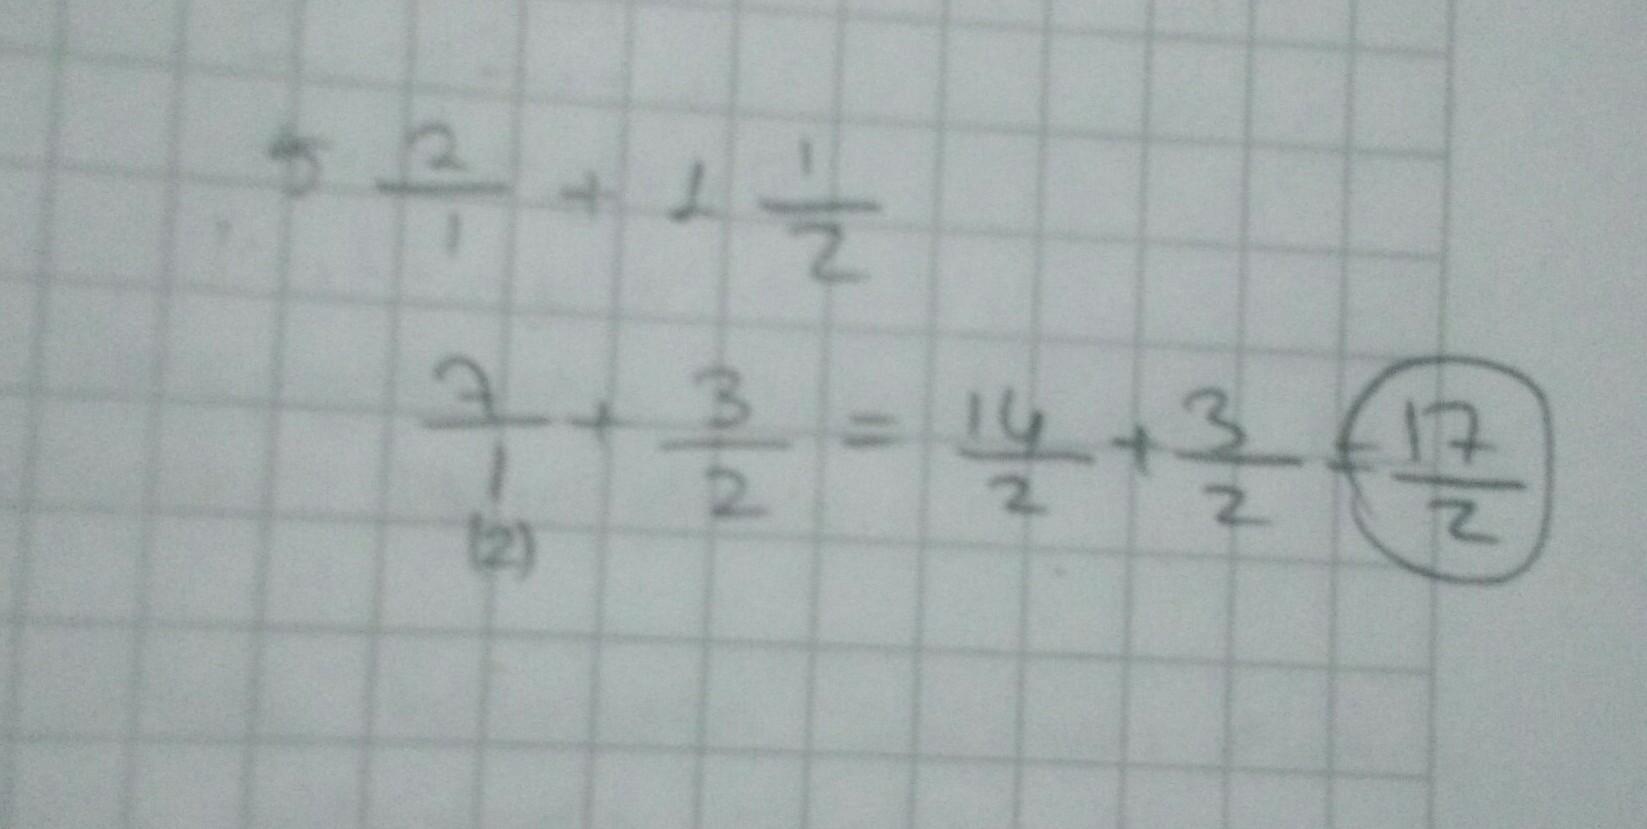 5 2/1 + 1 1/2
7/1 + 3/2 = 14/2 + 3/2 = 17/2
(2)